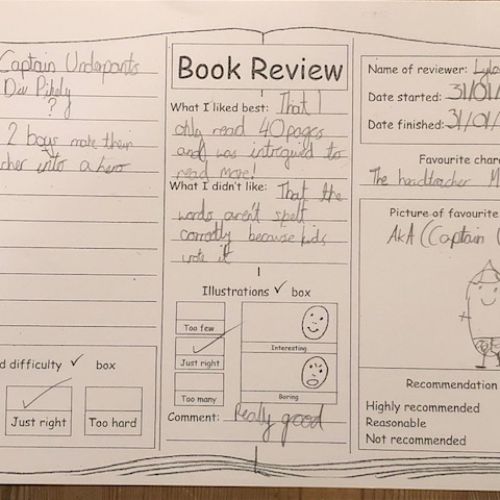 Captain Underpants
Dav Pikely
?
2 boys make their
cher into a hero
d difficulty ✓ box
Just right
Too hard
Book Review
What I liked best: That I
only read 40 pages
and was intrigued to
read more!
What I didn't like: That the
words aren't spelt
correctly because kids
wrote it
Illustrations ✓ box
Too few
Just right
Too many
Interesting
Boring
Comment: Really good
Name of reviewer: Lyla
Date started: 31/01/
Date finished: 31/01/
Favourite chara
The headteacher M
Picture of favourite
AKA (Captain U
Recommendation
Highly recommended
Reasonable
Not recommended